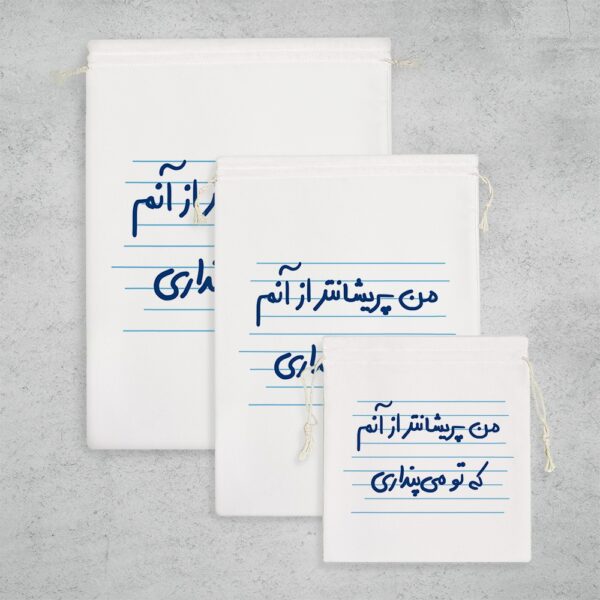 از آنم
نداری
من پریشانتر از آنم
نداری
من پریشانتر از آنم
که تو می‌پنداری